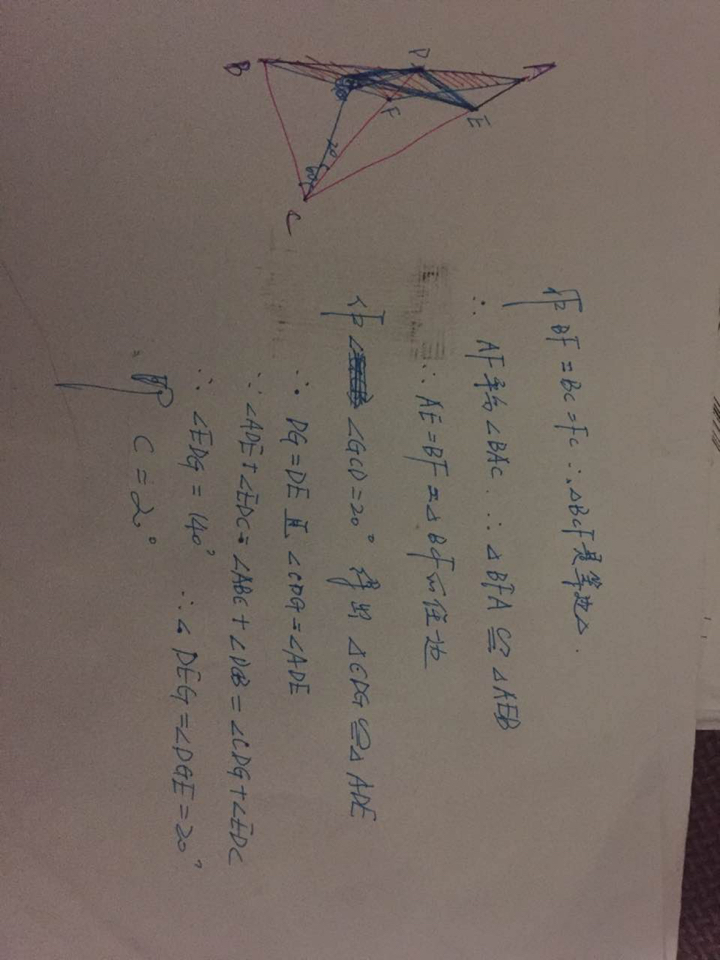 B
D
A
F
E
20
60
C
作 BF = BC = FC ∴ △BCF是等边△.
∵ AF平分∠BAC. ∴ △BFA ≌ △AEB
∴ AE = BF = △BCF的任边
作 ∠GCD = 20° 得出 △CDG ≌ △ADE
∴ DG = DE 且 ∠CDG = ∠ADE
∵ ∠ADE + ∠EDC = ∠ABC + ∠DCB = ∠CDG + ∠EDC
∴ ∠EDG = 140° ∴ ∠DEG = ∠DGE = 20°
C = 20°